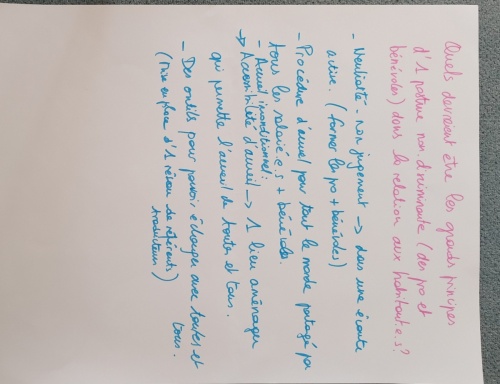 Quels devraient être les grands principes
d'1 posture non discriminante (des pro et
bénévoles) dans la relation aux habitant.e.s ?
- Neutralité - non jugement → dans une écoute
active. (former les pro + bénévoles)
- Procédure d'accueil pour tout le monde partagé par
tous les salarié.e.s + bénévoles.
- Accueil inconditionnel :
→ Accessibilité d'accueil → 1 lieu aménagé
qui permette l'accueil de toutes et tous.
- Des outils pour pouvoir échanger avec toutes et
tous.
(mise en place d'1 réseau de référents
traducteurs)